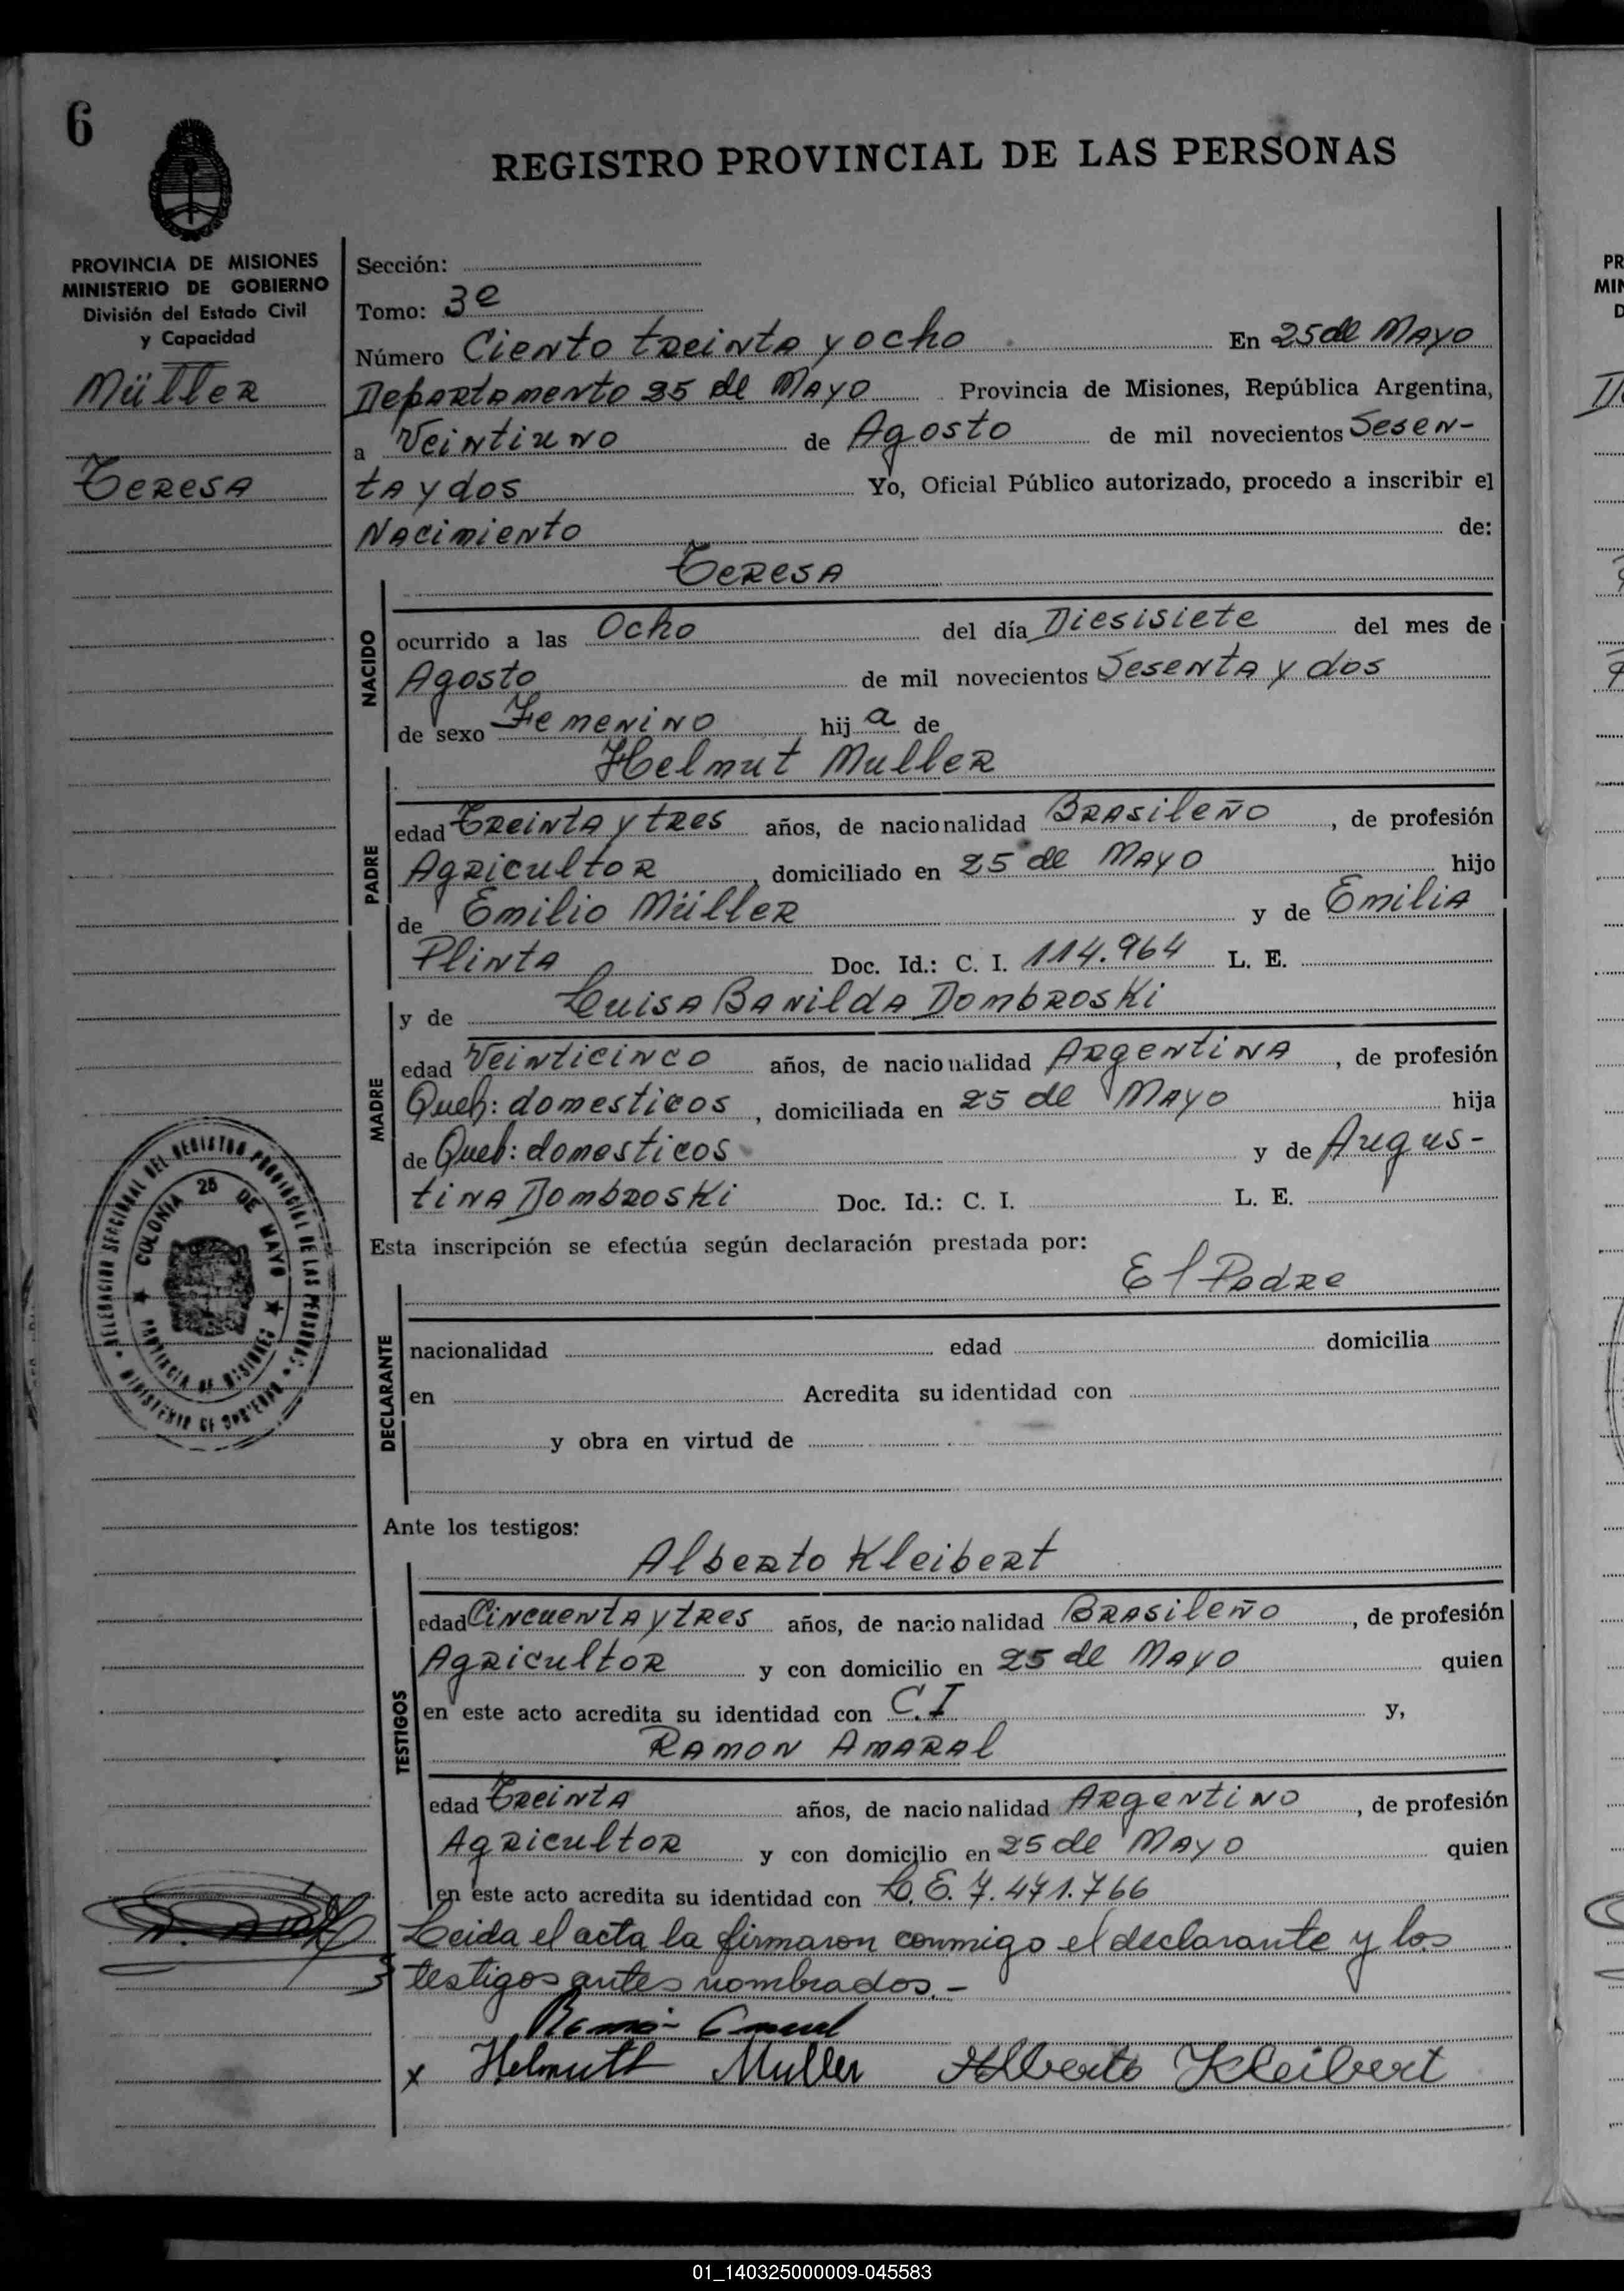 6
REGISTRO PROVINCIAL DE LAS PERSONAS
PROVINCIA DE MISIONES
MINISTERIO DE GOBIERNO
División del Estado Civil
y Capacidad
Müller
Teresa
Sección:
Tomo: 3e
Número Ciento treinta y ocho En 25 de Mayo
Departamento 25 de Mayo Provincia de Misiones, República Argentina,
a Veintiuno de Agosto de mil novecientos Sesen-
ta y dos Yo, Oficial Público autorizado, procedo a inscribir el
Nacimiento de:
Teresa
NACIDO
ocurrido a las Ocho del día Diesisiete del mes de
Agosto de mil novecientos Sesenta y dos
de sexo Femenino hij a de
Helmut Muller
PADRE
edad Treinta y tres años, de nacionalidad Brasileño, de profesión
Agricultor, domiciliado en 25 de Mayo hijo
de Emilio Müller y de Emilia
Plinta Doc. Id.: C. I. 114.964 L. E.
y de Luisa Banilda Dombroski
MADRE
edad Veinticinco años, de nacionalidad Argentina, de profesión
Queh: domesticos, domiciliada en 25 de Mayo hija
de Queh: domesticos y de Augus-
tina Dombroski Doc. Id.: C. I. L. E.
Esta inscripción se efectúa según declaración prestada por:
El Padre
DECLARANTE
nacionalidad edad domicilia
en Acredita su identidad con
y obra en virtud de
DELEGACION SECCIONAL DEL REGISTRO PROVINCIAL DE LAS PERSONAS
COLONIA 25 DE MAYO
PROVINCIA DE MISIONES
MINISTERIO DE GOBIERNO
Ante los testigos:
Alberto Kleibert
TESTIGOS
edad Cincuenta y tres años, de nacionalidad Brasileño, de profesión
Agricultor y con domicilio en 25 de Mayo quien
en este acto acredita su identidad con C.I y,
Ramon Amaral
edad Treinta años, de nacionalidad Argentino, de profesión
Agricultor y con domicilio en 25 de Mayo quien
en este acto acredita su identidad con L.E. 7.471.766
Leida el acta la firmaron conmigo el declarante y los
testigos antes nombrados.-
x Helmuth Muller Alberto Kleibert
01_140325000009-045583